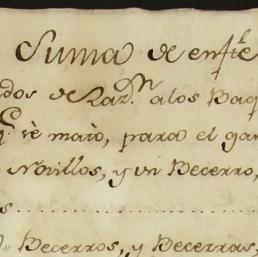 Suma de en
dos de Lar.n a los Paq
de maio, para el gan
Novillos, y un Becerro,
s..........................
Becerros, y Becerras,